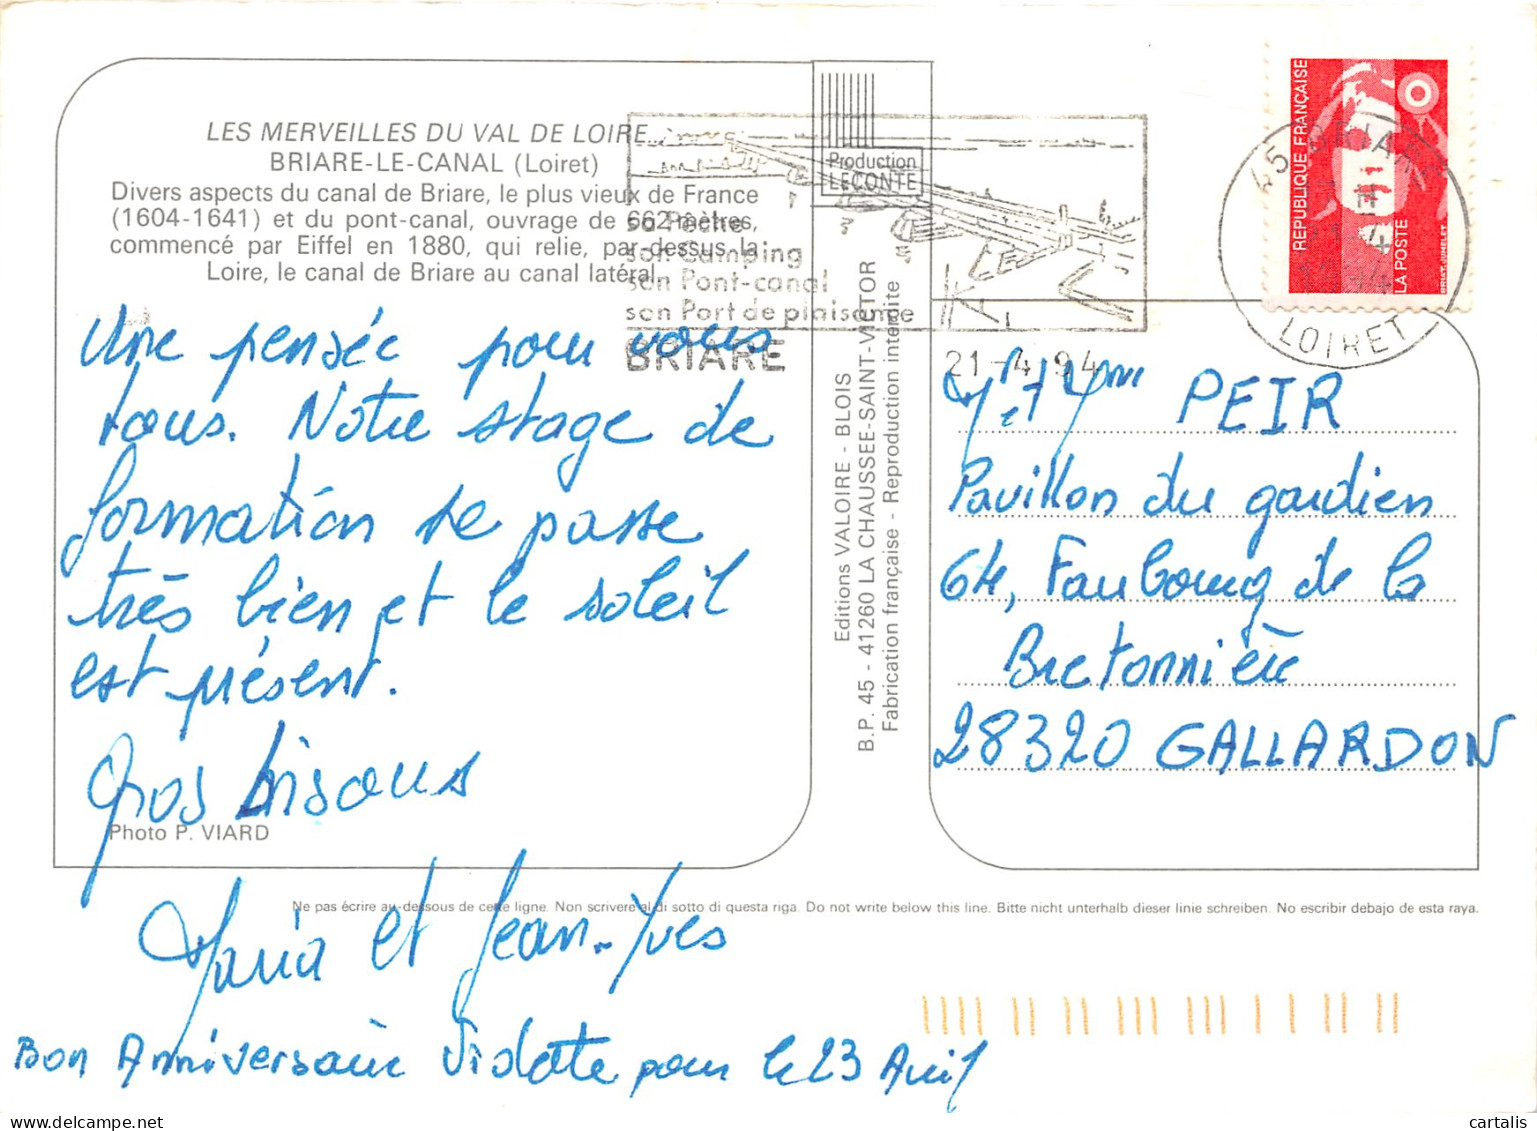 LES MERVEILLES DU VAL DE LOIRE...
BRIARE-LE-CANAL (Loiret)
Divers aspects du canal de Briare, le plus vieux de France
(1604-1641) et du pont-canal, ouvrage de 662 mètres,
commencé par Eiffel en 1880, qui relie, par-dessus la
Loire, le canal de Briare au canal latéral.
Production
LECONTE
sa Pêche
son Camping
son Pont-canal
son Port de plaisance
BRIARE
21-4 94
REPUBLIQUE FRANÇAISE
LA POSTE
BRIAT. JUMELET
45 BRIARE
LOIRET
Une pensée pour vous
tous. Notre stage de
formation se passe
très bien et le soleil
est présent.
Gros bisous
Photo P. VIARD
Maria et Jean-Yves
Bon Anniversaire pour le 23 Avril
Editions VALOIRE - BLOIS
B.P. 45 - 41260 LA CHAUSSEE-SAINT-VICTOR
Fabrication française - Reproduction interdite
M. et Mme PEIR
Pavillon du gardien
64, Faubourg de la
Bretonnière
28320 GALLARDON
Ne pas écrire au-dessous de cette ligne. Non scrivere al di sotto di questa riga. Do not write below this line. Bitte nicht unterhalb dieser linie schreiben. No escribir debajo de esta raya.
cartalis